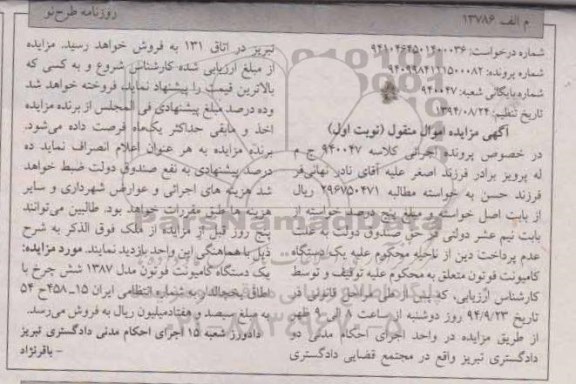 م الف ۱۳۷۸۶
روزنامه طرح نو
شماره درخواست: ۹۴۱۰۴۶۴۵۰۱۴۰۰۰۳۶
شماره پرونده: ۹۴۰۹۹۸۴۱۱۱۵۰۰۰۸۲
شماره بایگانی شعبه: ۹۴۰۰۴۷
تاریخ تنظیم: ۱۳۹۴/۰۸/۲۴
آگهی مزایده اموال منقول (نوبت اول)
در خصوص پرونده اجرائی کلاسه ۹۴۰۰۴۷ ج م
له پرویز برادر فرزند اصغر علیه آقای نادر نهانی‌فر
فرزند حسن به خواسته مطالبه ۲۹۶۷۵۰۴۷۱ ریال
از بابت اصل خواسته و مبلغ پنج درصد خواسته از
بابت نیم عشر دولتی در حق صندوق دولت به علت
عدم پرداخت دین از ناحیه محکوم علیه یک دستگاه
کامیونت فوتون متعلق به محکوم علیه توقیف و توسط
کارشناس ارزیابی، که پس از طی مراحل قانونی در
تاریخ ۹۴/۹/۲۳ روز دوشنبه از ساعت ۸ الی ۹ ظهر
از طریق مزایده در واحد اجرای احکام مدنی دو
دادگستری تبریز واقع در مجتمع قضایی دادگستری
تبریز در اتاق ۱۳۱ به فروش خواهد رسید. مزایده
از مبلغ ارزیابی شده کارشناس شروع و به کسی که
بالاترین قیمت را پیشنهاد نماید، فروخته خواهد شد
وده درصد مبلغ پیشنهادی فی المجلس از برنده مزایده
اخذ و مابقی حداکثر یک‌ماه فرصت داده می‌شود.
برنده مزایده به هر عنوان اعلام انصراف نماید ده
درصد پیشنهادی به نفع صندوق دولت ضبط خواهد
شد هزینه های اجرائی و عوارض شهرداری و سایر
هزینه ها طبق مقررات خواهد بود. طالبین می‌توانند
پنج روز قبل از مزایده از ملک فوق الذکر به شرح
ذیل با هماهنگی این واحد بازدید نمایند. مورد مزایده:
یک دستگاه کامیونت فوتون مدل ۱۳۸۷ شش چرخ با
اطاق یخچالدار به شماره انتظامی ایران ۱۵ـ۴۵۸ح ۵۴
به مبلغ سیصد و هفتادمیلیون ریال به فروش می‌رسد.
دادورز شعبه ۱۵ اجرای احکام مدنی دادگستری تبریز
- باقرنژاد
ParsNamadData